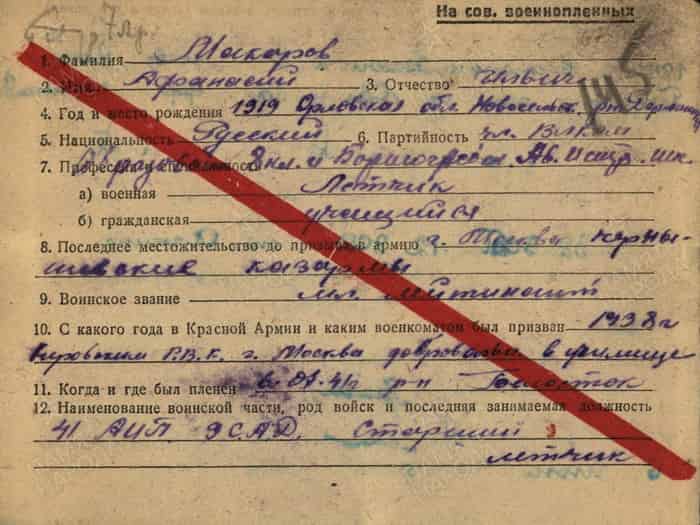 На сов. военнопленных
145
1. Фамилия Макаров
2. Имя Афанасий 3. Отчество Ильич
4. Год и место рождения 1919 Орловская обл. Новосельск. р-н
5. Национальность Русский 6. Партийность чл. ВЛКСМ
7. Профессия и специальность 8 кл. и Борисоглебская Ав. Истр. шк.
а) военная Летчик
б) гражданская учащийся
8. Последнее местожительство до призыва в армию г. Москва Черны-
шевские казармы
9. Воинское звание мл. лейтинант
10. С какого года в Красной Армии и каким военкоматом был призван 1938 г
Кировским Р.В.К. г. Москва добровольн. в училище
11. Когда и где был пленен р-н Белосток
12. Наименование воинской части, род войск и последняя занимаемая должность
41 АИП 9 САД. Старший
летчик